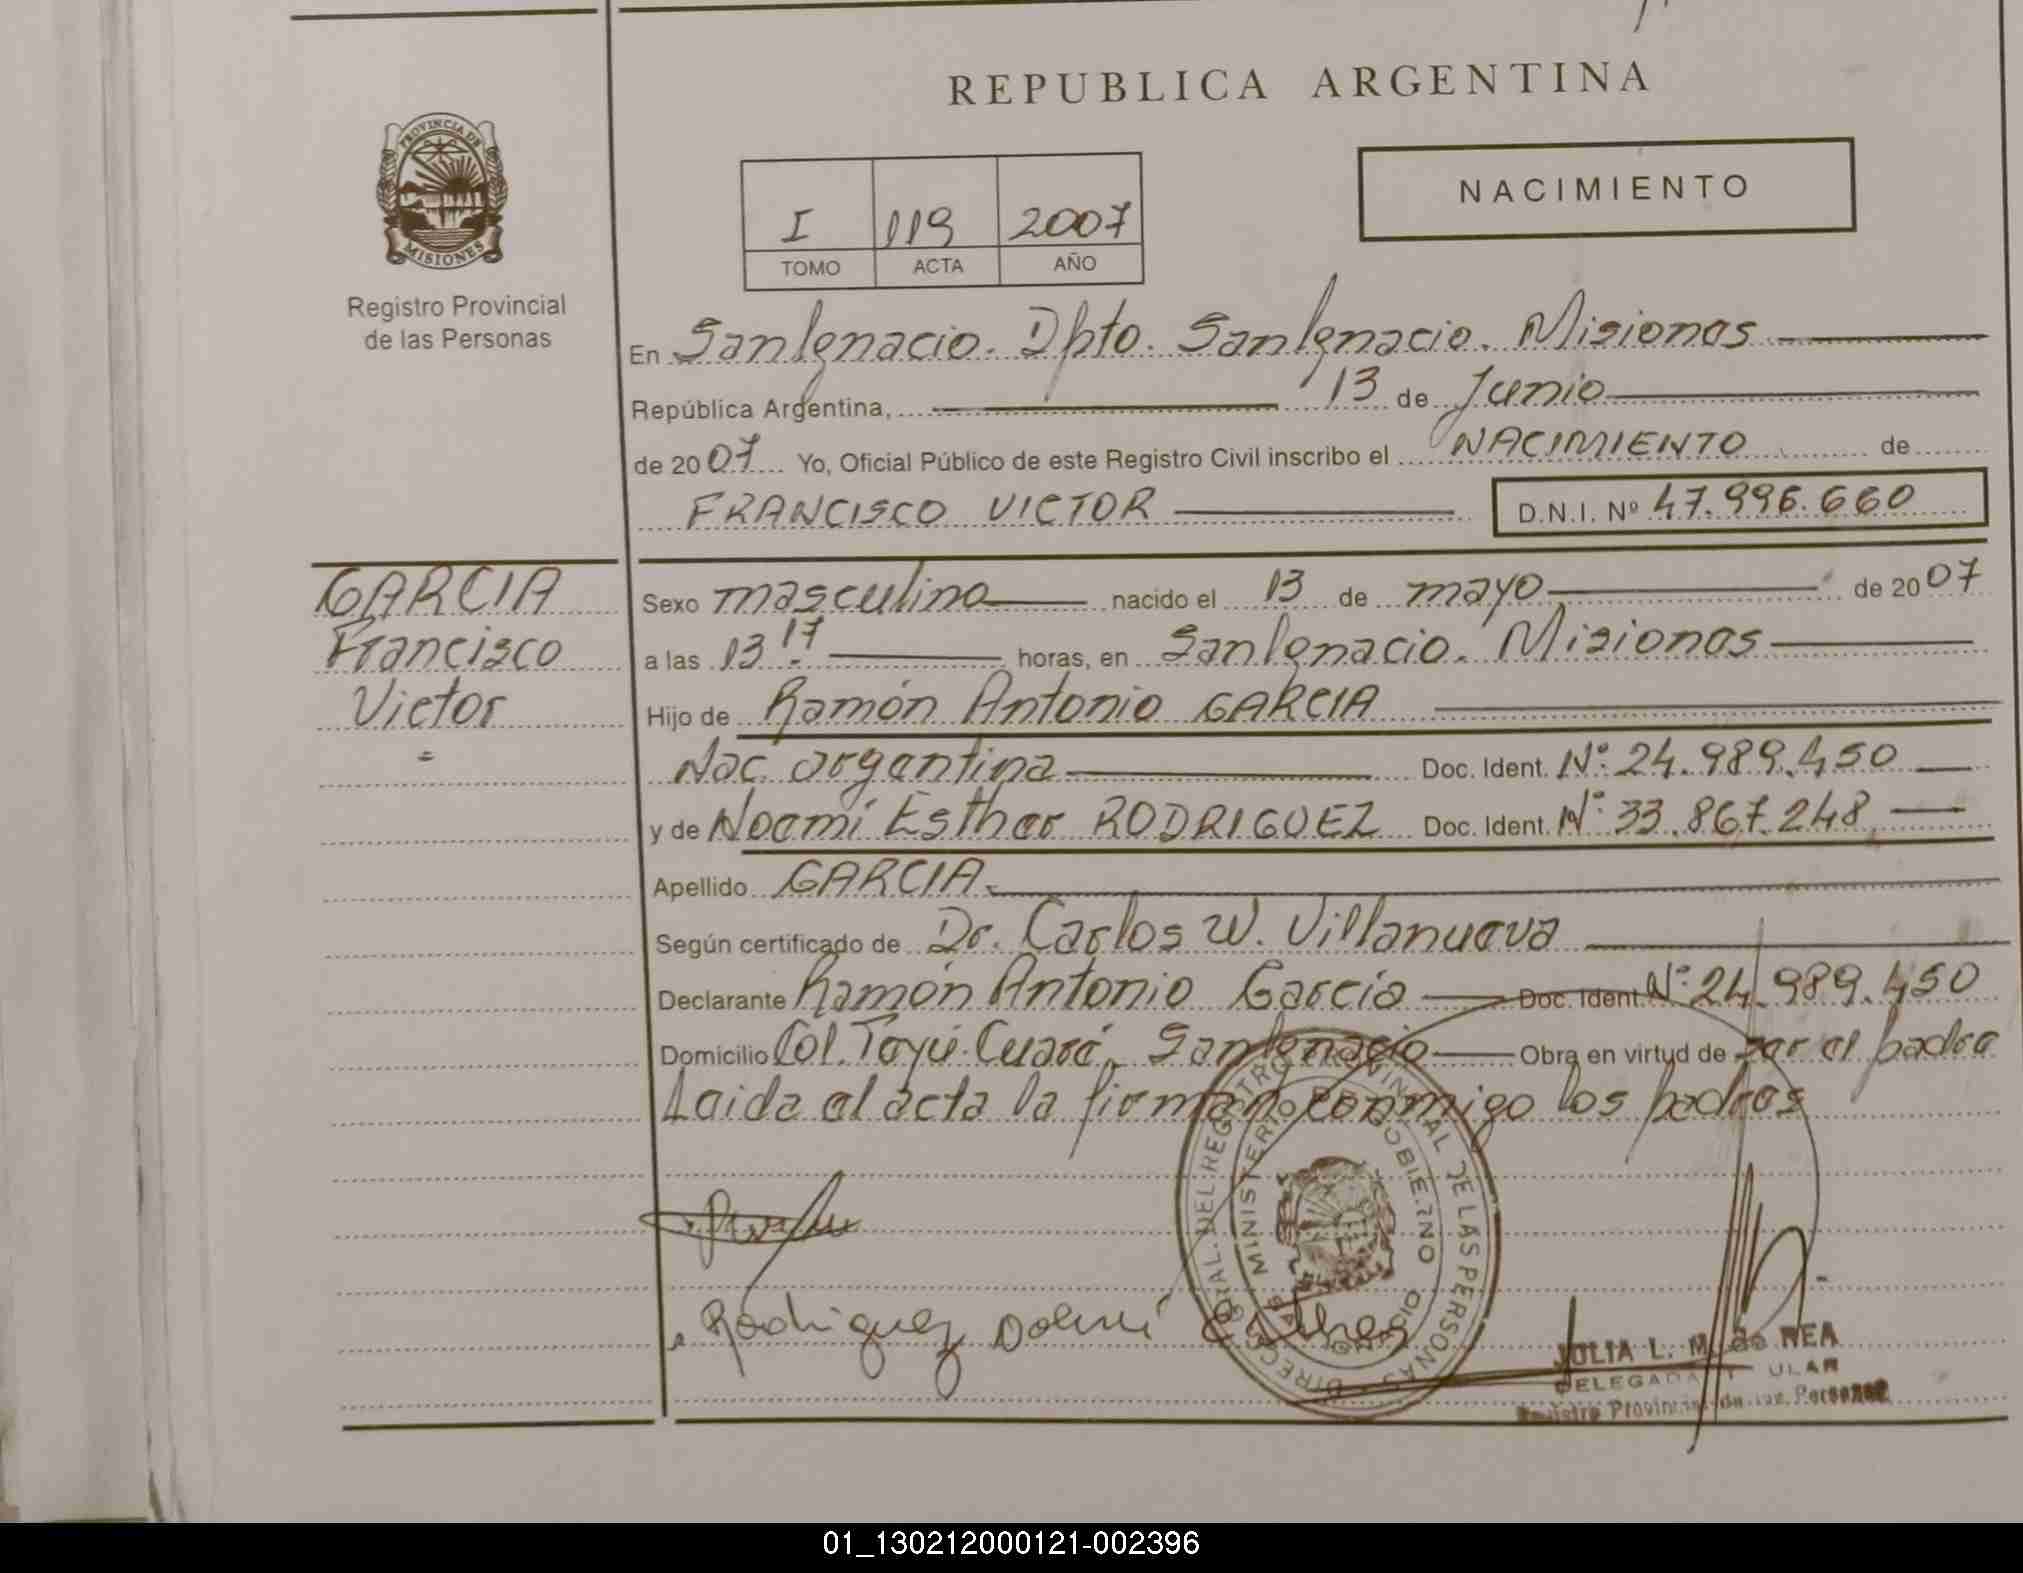 REPUBLICA ARGENTINA
PROVINCIA DE MISIONES
Registro Provincial
de las Personas
NACIMIENTO
I 119 2007
TOMO ACTA AÑO
En San Ignacio. Dpto. San Ignacio. Misiones
República Argentina, 13 de Junio
de 2007 Yo, Oficial Público de este Registro Civil inscribo el NACIMIENTO de
FRANCISCO VICTOR D.N.I. Nº 47.996.660
GARCIA
Francisco
Victor
Sexo masculino nacido el 13 de mayo de 2007
a las 13.17 horas, en San Ignacio. Misiones
Hijo de Ramón Antonio GARCIA
Nac. argentina Doc. Ident. Nº: 24.989.450
y de Noemí Esther RODRIGUEZ Doc. Ident. Nº: 33.867.248
Apellido GARCIA
Según certificado de Dr. Carlos W. Villanueva
Declarante Ramón Antonio García Doc. Ident. Nº: 24.989.450
Domicilio Col. Teyú Cuaré, San Ignacio Obra en virtud de ser el padre
Leida el acta la firman conmigo los padres
DIRECCION GRAL. DEL REGISTRO PROVINCIAL DE LAS PERSONAS
MINISTERIO DE GOBIERNO
Rodriguez Esther
JULIA L. M. de REA
DELEGADA TITULAR
Registro Provincial de las Personas
01_130212000121-002396